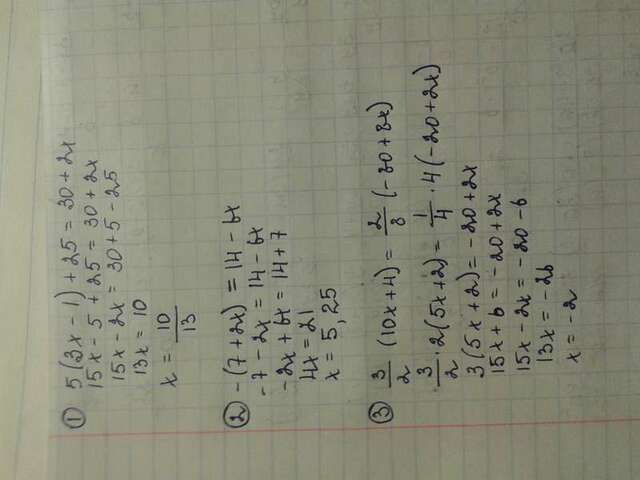 ① 5(3x - 1) + 25 = 30 + 2x
15x - 5 + 25 = 30 + 2x
15x - 2x = 30 + 5 - 25
13x = 10
x = 10/13
② -(7 + 2x) = 14 - 6x
-7 - 2x = 14 - 6x
-2x + 6x = 14 + 7
4x = 21
x = 5,25
③ 3/2 (10x + 4) = 2/8 (-80 + 8x)
3/2 · 2(5x + 2) = 1/4 · 4(-20 + 2x)
3(5x + 2) = -20 + 2x
15x + 6 = -20 + 2x
15x - 2x = -20 - 6
13x = -26
x = -2